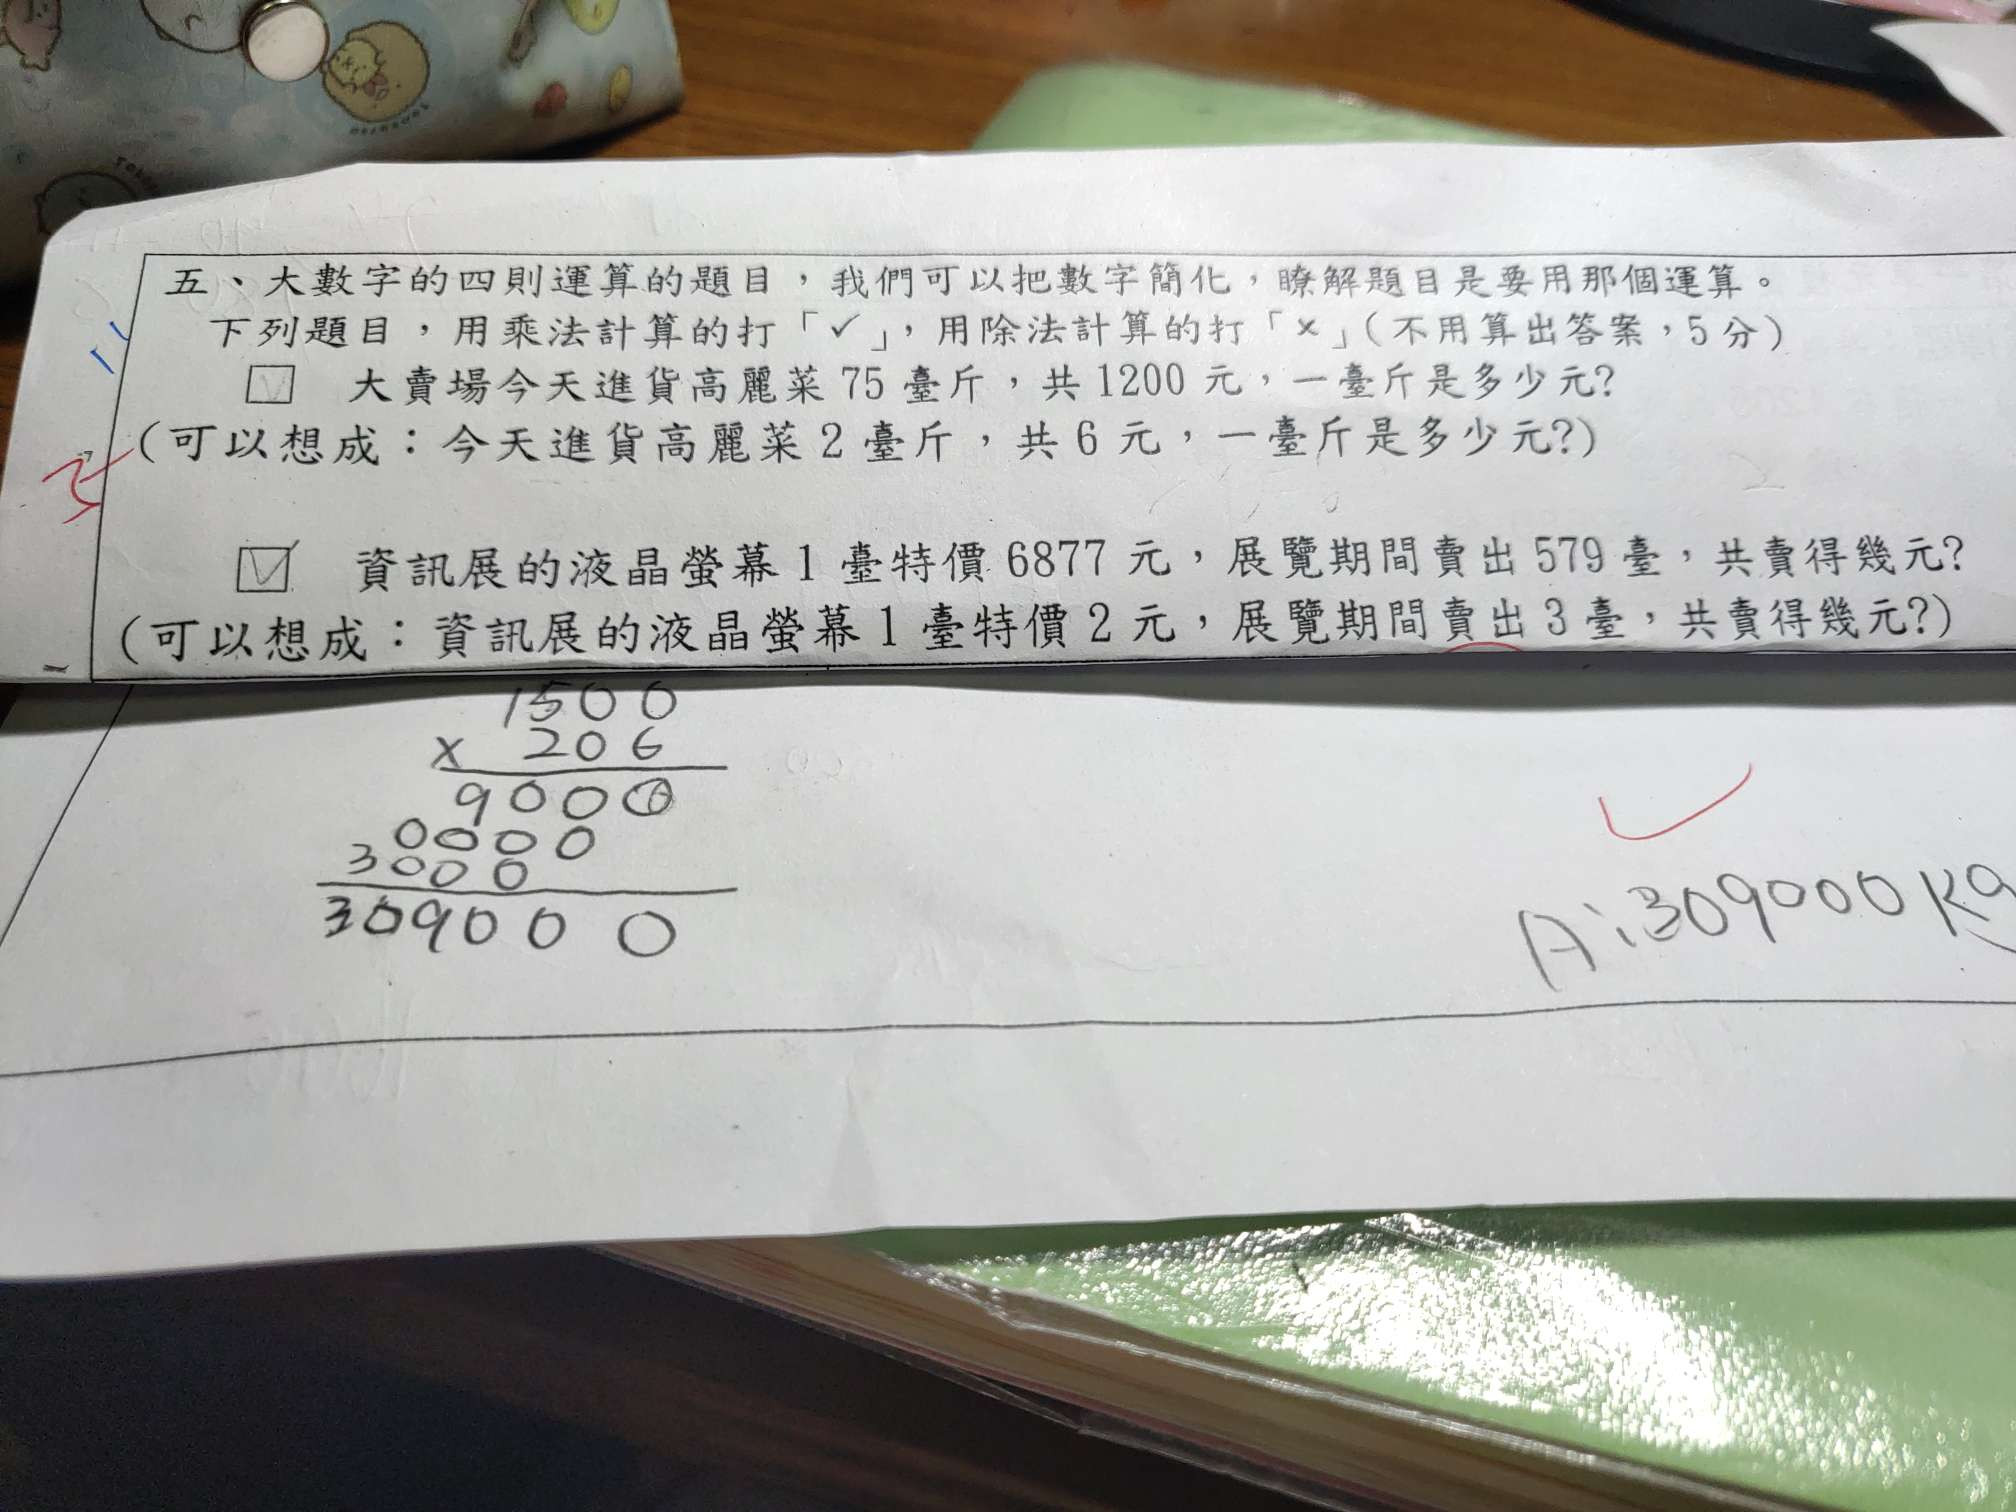 五、大數字的四則運算的題目，我們可以把數字簡化，瞭解題目是要用那個運算。
下列題目，用乘法計算的打「✓」，用除法計算的打「×」(不用算出答案，5分)
☑ 大賣場今天進貨高麗菜 75 臺斤，共 1200 元，一臺斤是多少元?
(可以想成：今天進貨高麗菜 2 臺斤，共 6 元，一臺斤是多少元?)
☑ 資訊展的液晶螢幕 1 臺特價 6877 元，展覽期間賣出 579 臺，共賣得幾元?
(可以想成：資訊展的液晶螢幕 1 臺特價 2 元，展覽期間賣出 3 臺，共賣得幾元?)
1500
× 206
9000
0000
3000
309000
A:309000kg